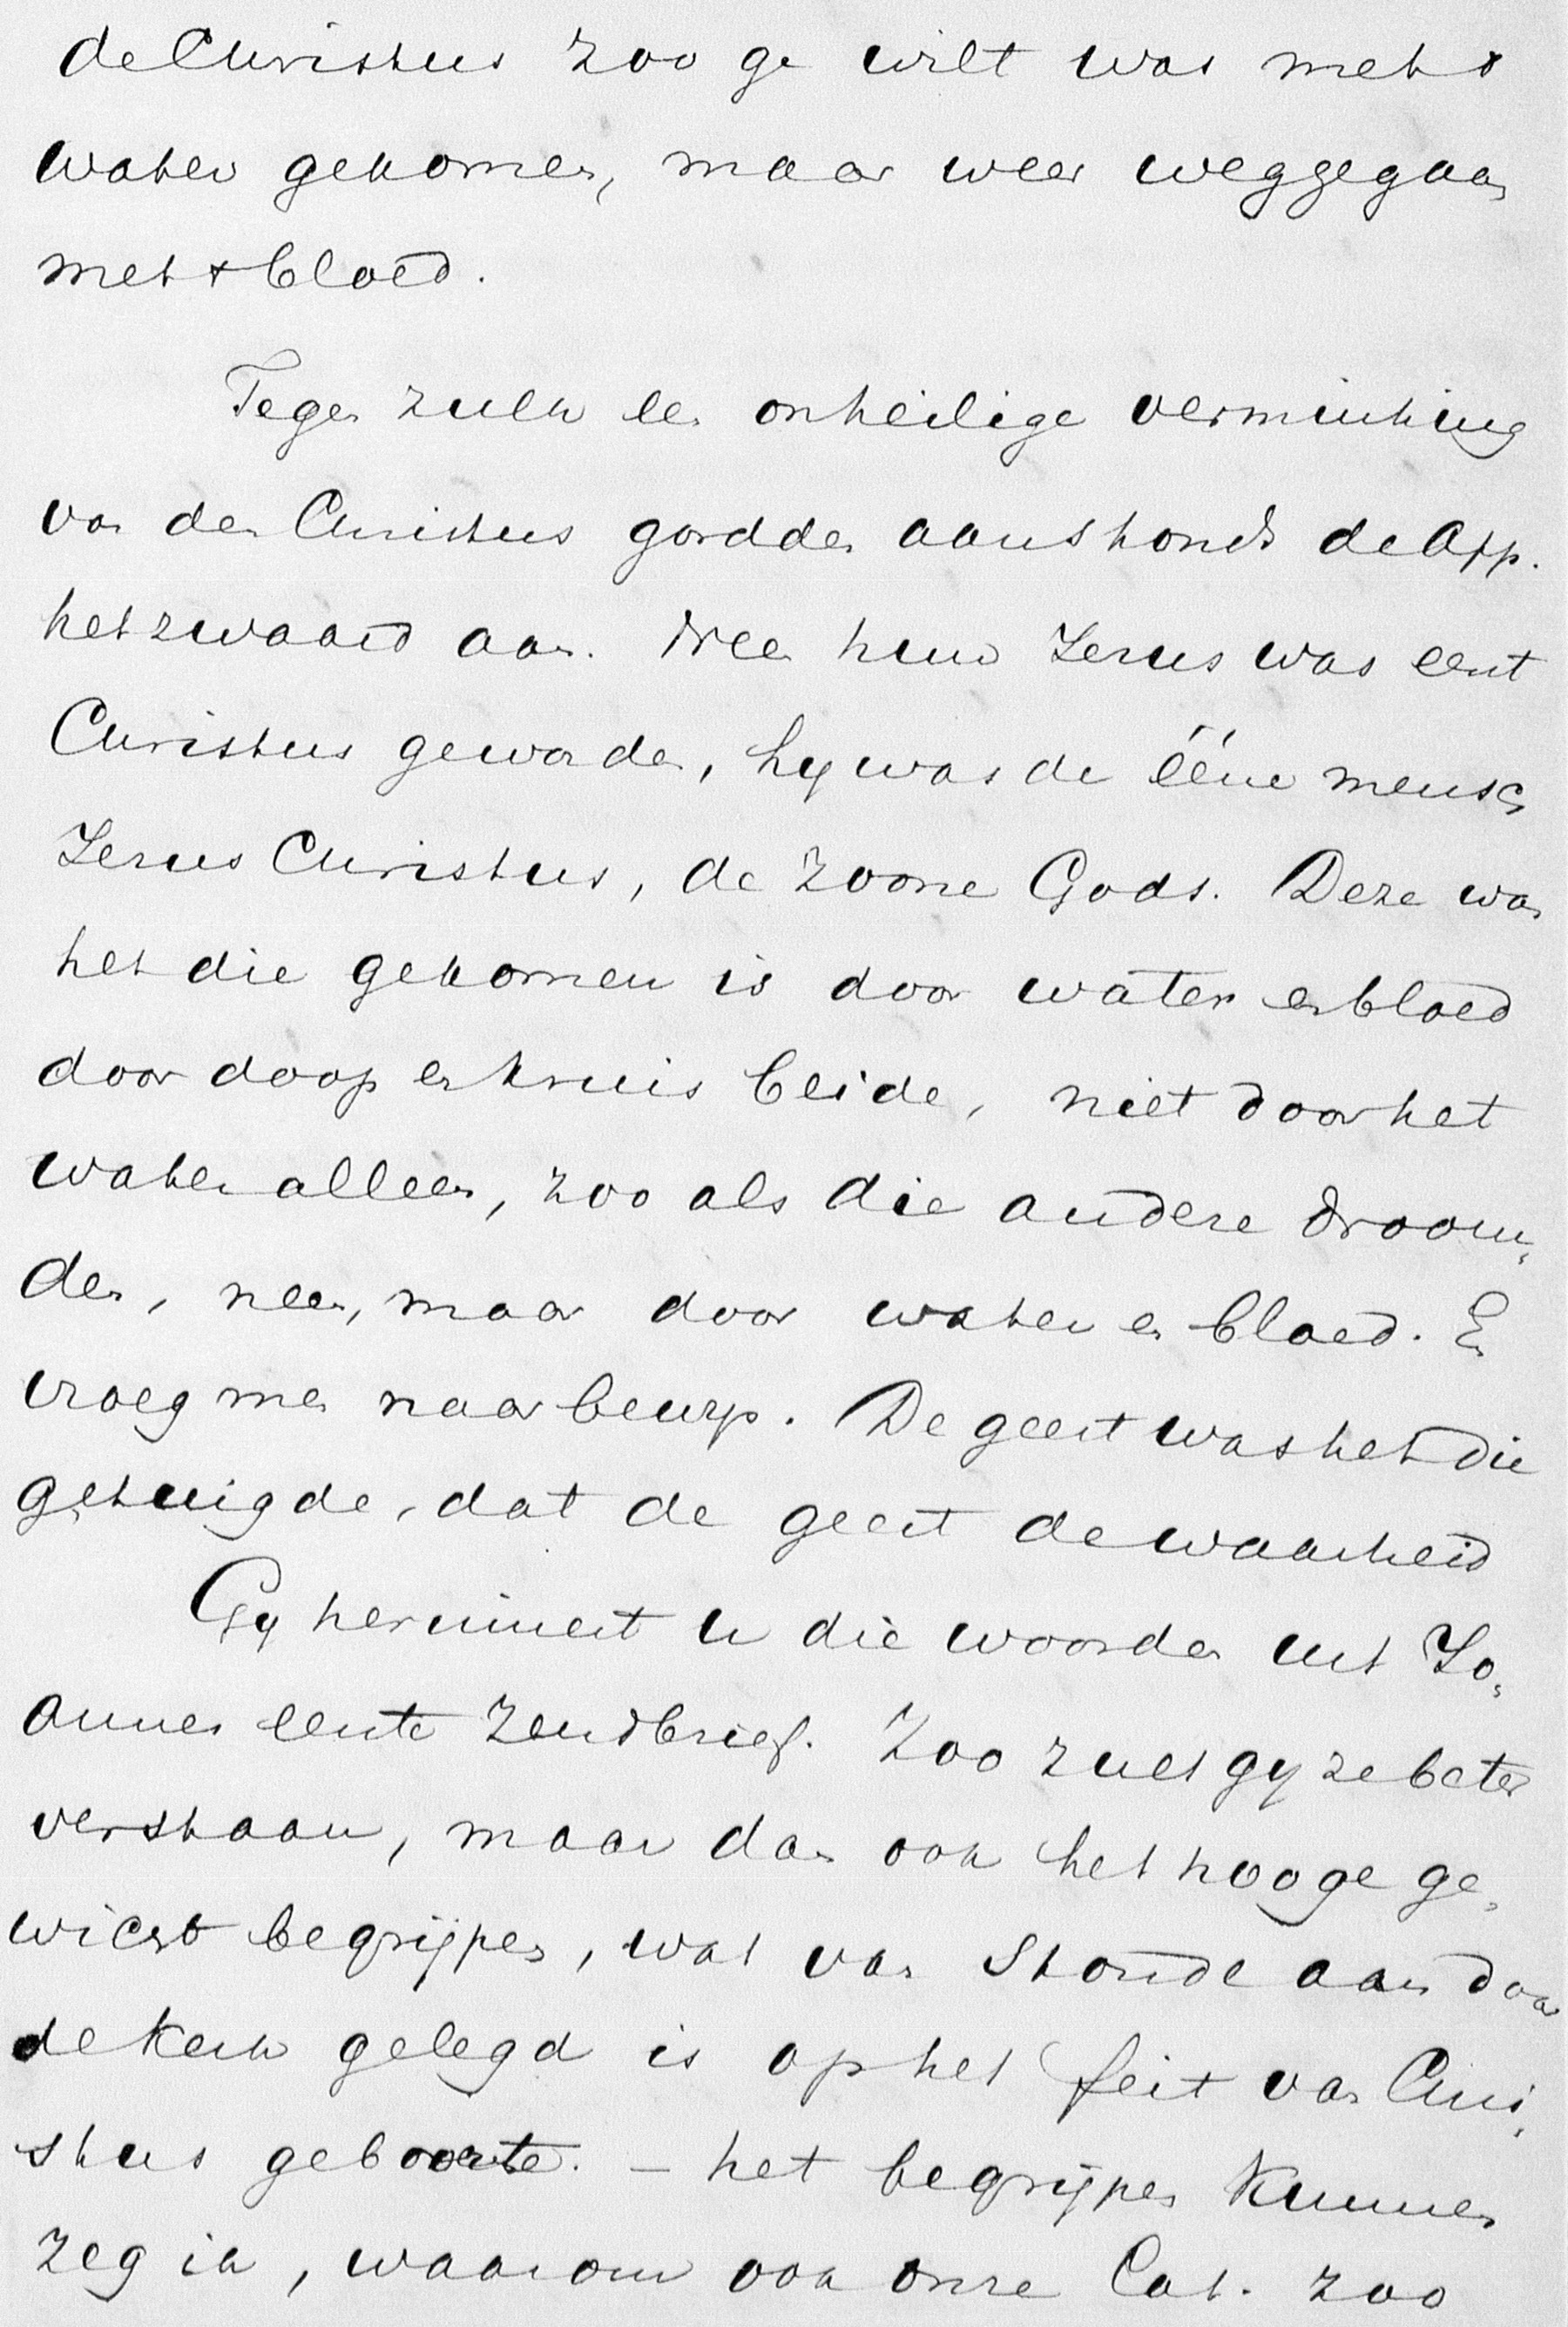 de Christus zoo ge wilt was met x
water gekomen, maar weer weggegaan
met x bloed.
Tegen zulk een onheilige verminking
van den Christus gordden aanstonds de App.
het zwaard aan. Neen hun Jezus was eerst
Christus geworden, hy was de ééne mensch
Jezus Christus, de Zoone Gods. Deze was
het die gekomen is door water en bloed
door doop en kruis beide, niet door het
water alleen, zoo als die andere droom„
den, neen, maar door water en bloed. En
vroeg men naar bewys. De geest was het die
getuigde, dat de geest de waarheid
Gy herinnert u die woorden uit Jo„
annes eerste Zendbrief. Zoo zult gy ze beter
verstaan, maar dan ook het hooge ge„
wicht begrijpen, wat van Stonde aan door
de Kerk gelegd is op het feit van Chri„
stus geboorte. – het begrijpen kunnen
zeg ik, waarom ook onze Cat. zoo